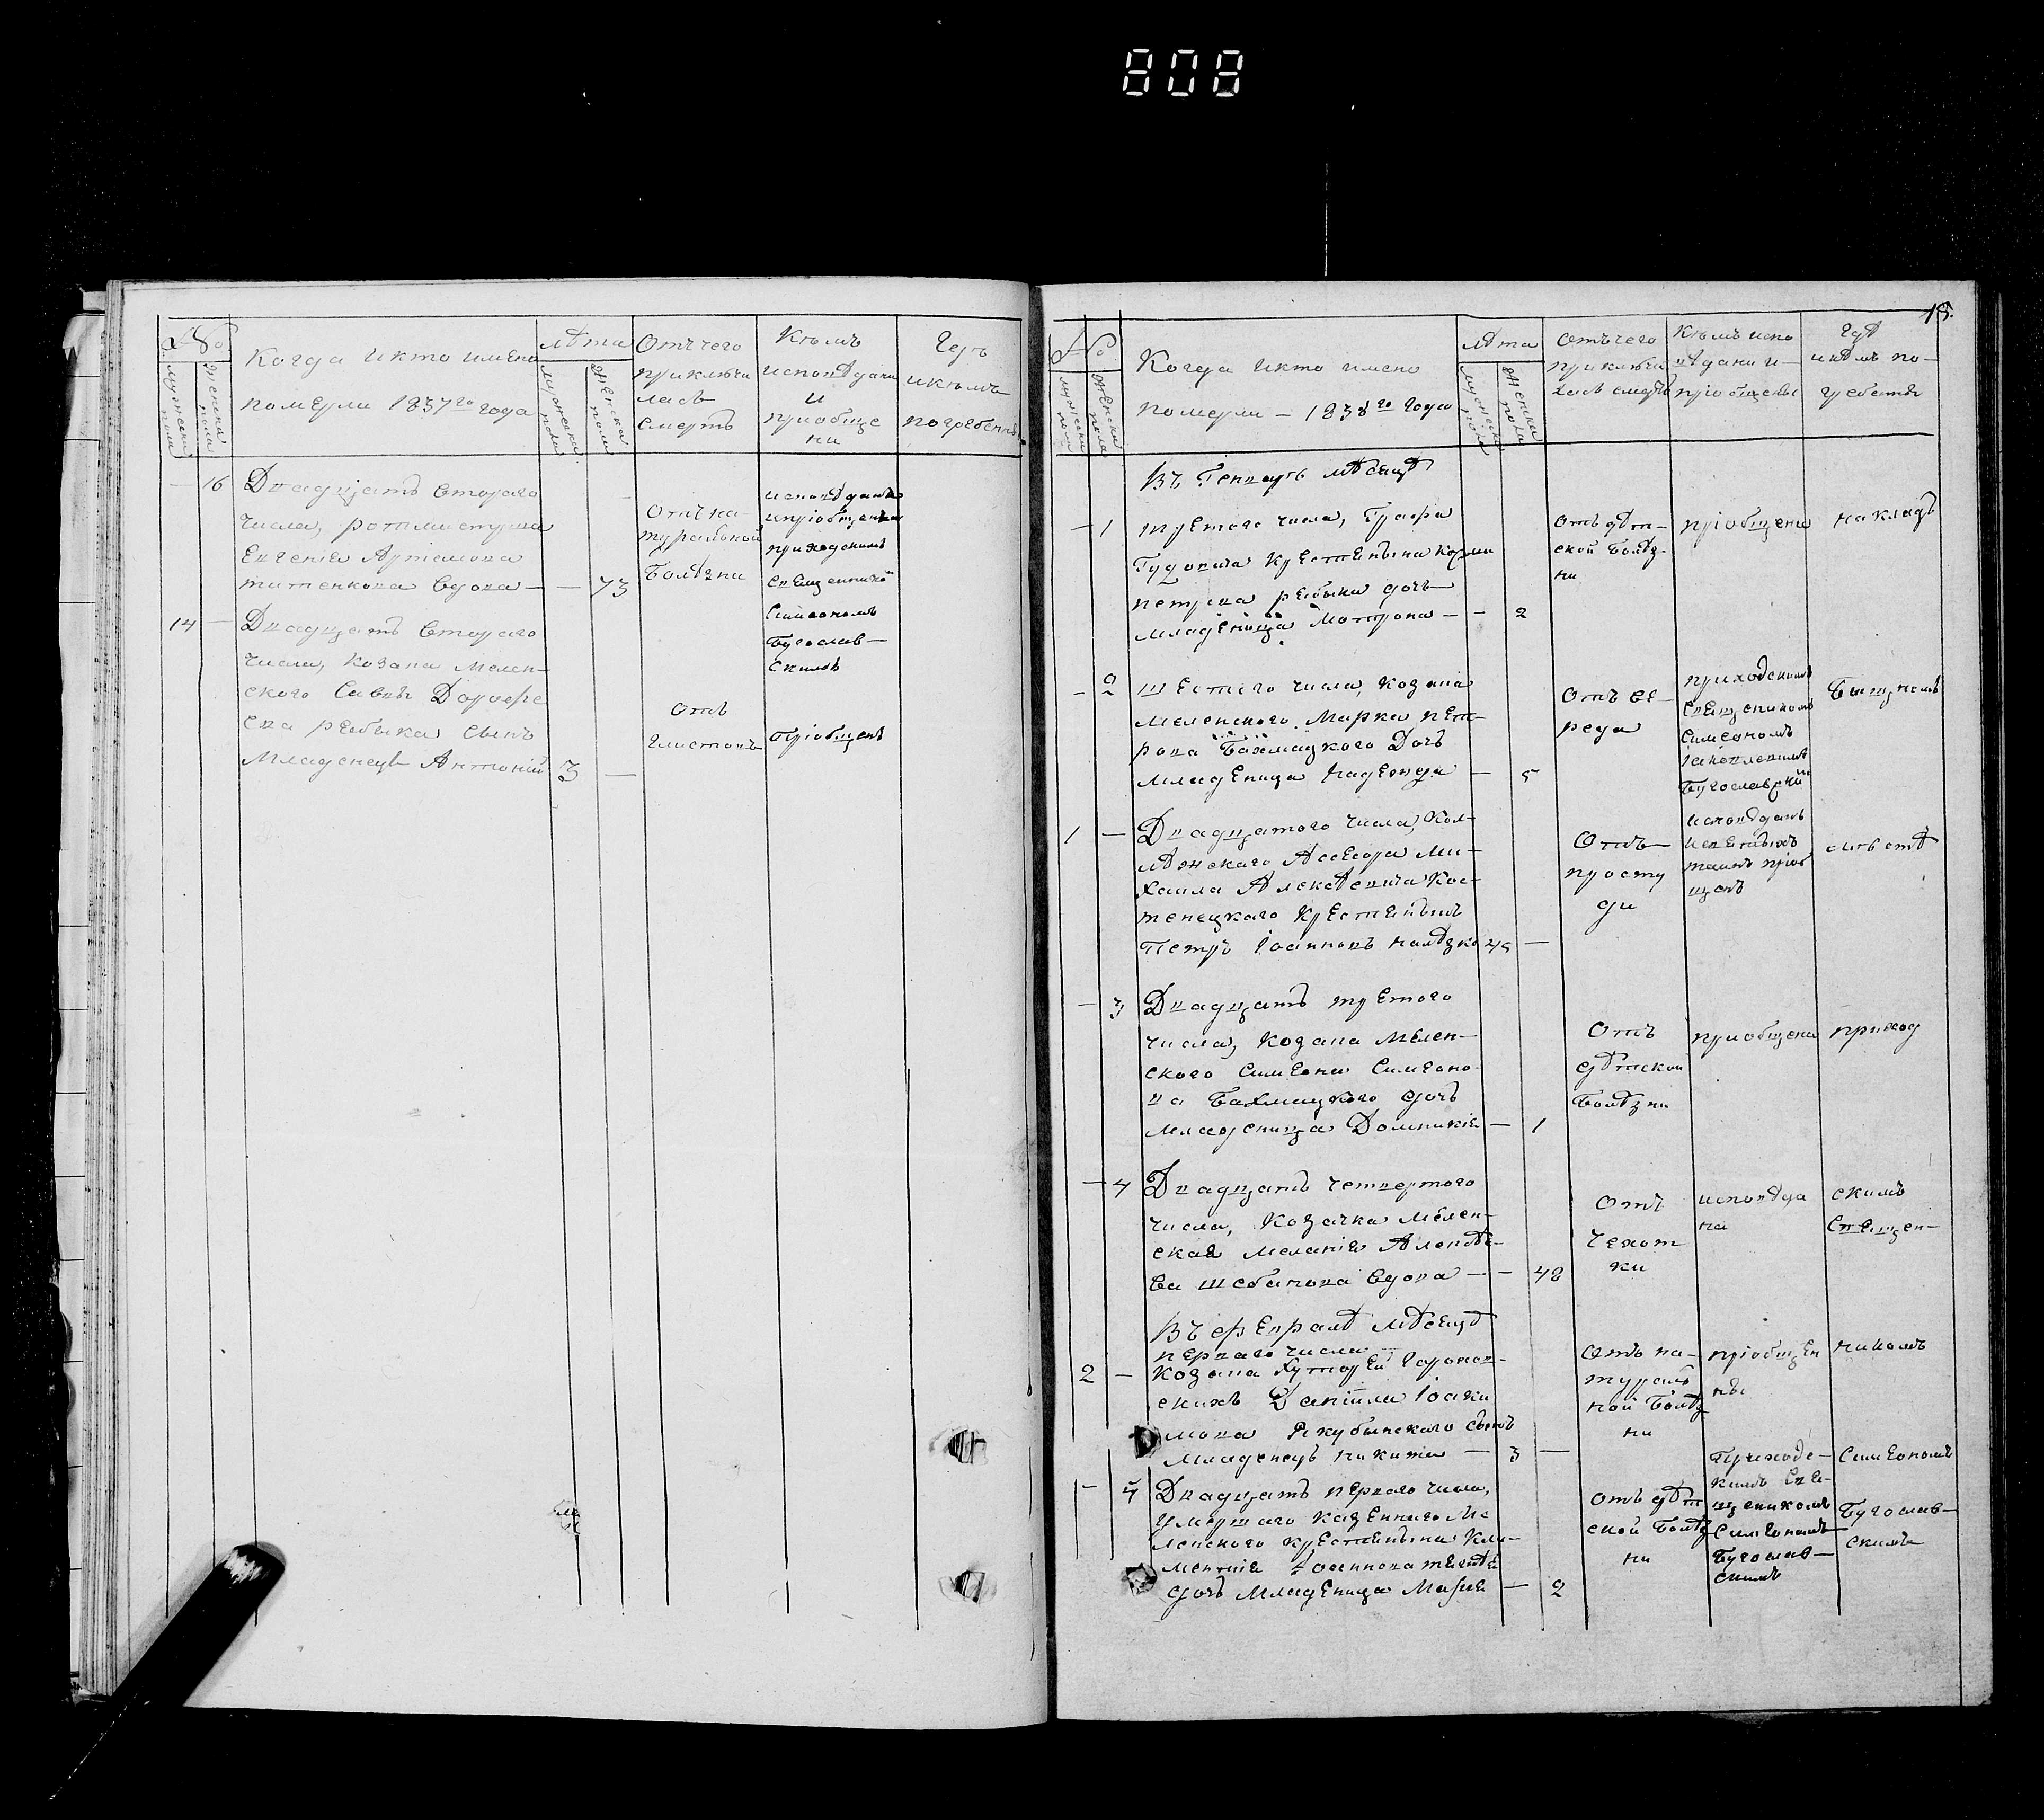 808
№
мужеска пола
женска пола
Когда икто имено
померли 1837го года
лѣта
мужеска пола
женска пола
Отъчего
приключи
лась
смерть
Кѣмъ
исповѣдани
и
приобще
ни
Гдѣ
икѣмъ
погребены
— 16 Двадцать второго
числа, ротмистрша
Евгенія Артемова
титенкова вдова — — 73
Отъ на-
туральной
Болѣзни
исповѣдана
ипріобщена
приходскимъ
Священникомъ
Симеономъ
Бугослав—
Скимъ
14 — Двадцать второго
числа, козака Мелен-
ского Саввы Дорофе
ева рябика сынъ
Младенецъ Антоній 3 —
Отъ
глистовъ
пріобщенъ
18.
№
мужеска пола
женска пола
Когда икто имено
померли — 1838го года
лѣта
мужеска пола
женска пола
отъчего
приключи
лась смерть
Кѣмъ испо
вѣдани и-
пріобщены
гдѣ
икѣмъ по-
гребены
Въ Генварѣ мѣсяцѣ
— 1 третого числа, Графа
Гудовича Крестянина
петрова рябика дочь
младеница Мотрона — — 2
отъ дѣт-
ской Болѣз-
ни
пріобщена
накладъ
— 2 шестого числа, козака
Меленского Марка пет-
рова Бахмацкого Дочь
младеница надежда — 5
Отъ ве-
реда
приходскимъ
Священикомъ
Симеономъ
Іаковлевимъ
Бугославским
Бищнемъ
1 — Двадцатого числа, Кол-
лѣжского Ассесора Ми-
хаила Алексѣевича Кос-
тенецкого Крестянинъ
Петръ Іоанновъ 45 —
Отъ—
просту
ди
исповѣданъ
исвятыхъ
таинъ пріоб
щенъ
— 3 Двадцать третого
числа, козака Мелен-
ского Симеона Симеоно-
ва Бахмацкого дочь
младеница Домникія — 1
Отъ
дѣтской
Болѣзни
приобщена
приход
— 4 Двадцать четвертого
числа, Козачка Мелен-
ская меланія Алексѣе-
ва вдова — — 48
Отъ
Чехот
ки
исповѣда
на
скимъ
Священ—
Въ февралѣ мѣсяцѣ
перваго числа
2 — Козака Хуторей
скихъ Даніила Іоаки
мова сынъ
Младенецъ никита — 3 —
отъ на-
тураль
ной Болѣз
ни
пріобщен
ны
никомъ
— 5 Двадцать перваго числа,
умершаго казенного Ме
ленского крестянина Кли-
ментія Іоаннова
дочь Младеница Марія — 2
отъ дѣт
ской Болѣз
ни
Приходс—
кимъ Свя-
щеникомъ
Симеономъ
Бугослав—
Скимъ
Симеономъ
Бугослав—
скимъ